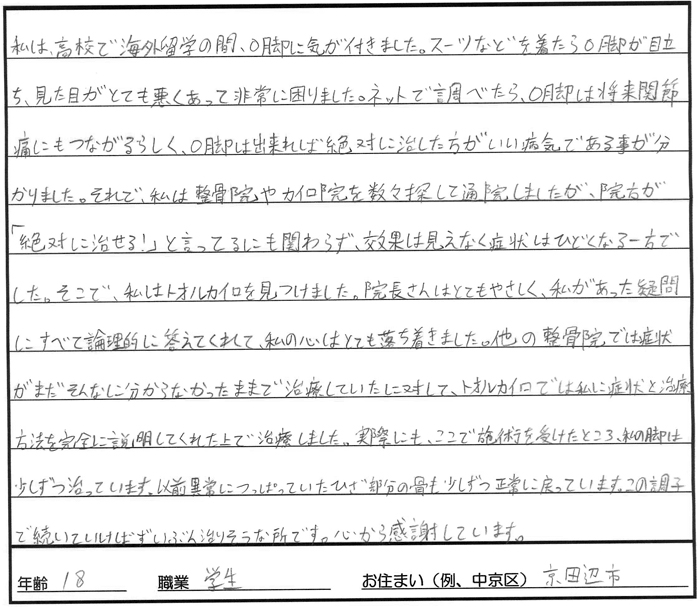 私は、高校で海外留学の間、O脚に気が付きました。スーツなどを着たらO脚が目立
ち、見た目がとても悪くあって非常に困りました。ネットで調べたら、O脚は将来関節
痛にもつながるらしく、O脚は出来れば絶対に治した方がいい病気である事が分
かりました。それで、私は整骨院やカイロ院を数々探して通院しましたが、院方が
「絶対に治せる!」と言ってるにも関わらず、効果は見えなく症状はひどくなる一方で
した。そこで、私はトオルカイロを見つけました。院長さんはとてもやさしく、私があった疑問
にすべて論理的に答えてくれまして、私の心はとても落ち着きました。他の整骨院では症状
がまだそんなに分からなかったままで治療していたに対して、トオルカイロでは私に症状と治療
方法を完全に説明してくれた上で治療しました。実際にも、ここで施術を受けたところ、私の脚は
少しずつ治っています。以前異常につっぱっていたひざ部分の骨も少しずつ正常に戻っています。この調子
で続いていければずいぶん治りそうな所です。心から感謝しています。
年齢 18 職業 学生 お住まい（例、中京区） 京田辺市